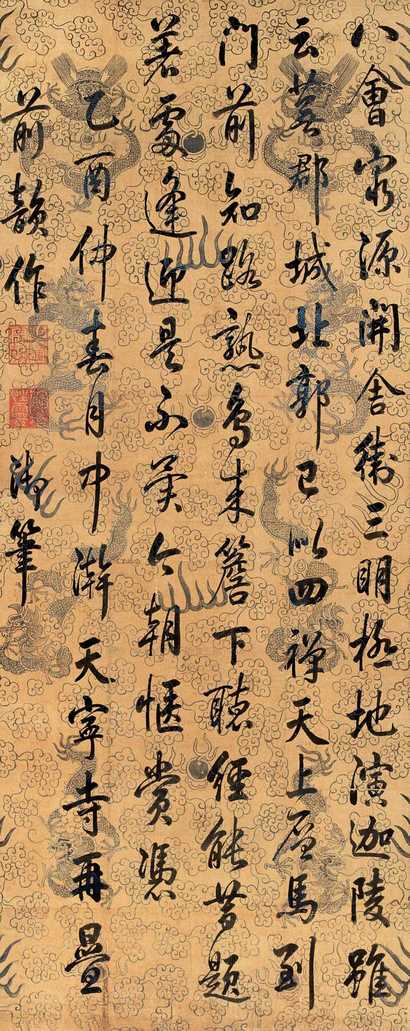 八會窮源開舍衛三明極地演迦陵雖
云蕪郡城北郭已似四禪天上層馬到
門前知路熟鳥來簷下聽經能昔題
著處逢迎是不今朝愜賞憑
乙酉仲春月中澣天寧寺再疊
前韻作 御筆